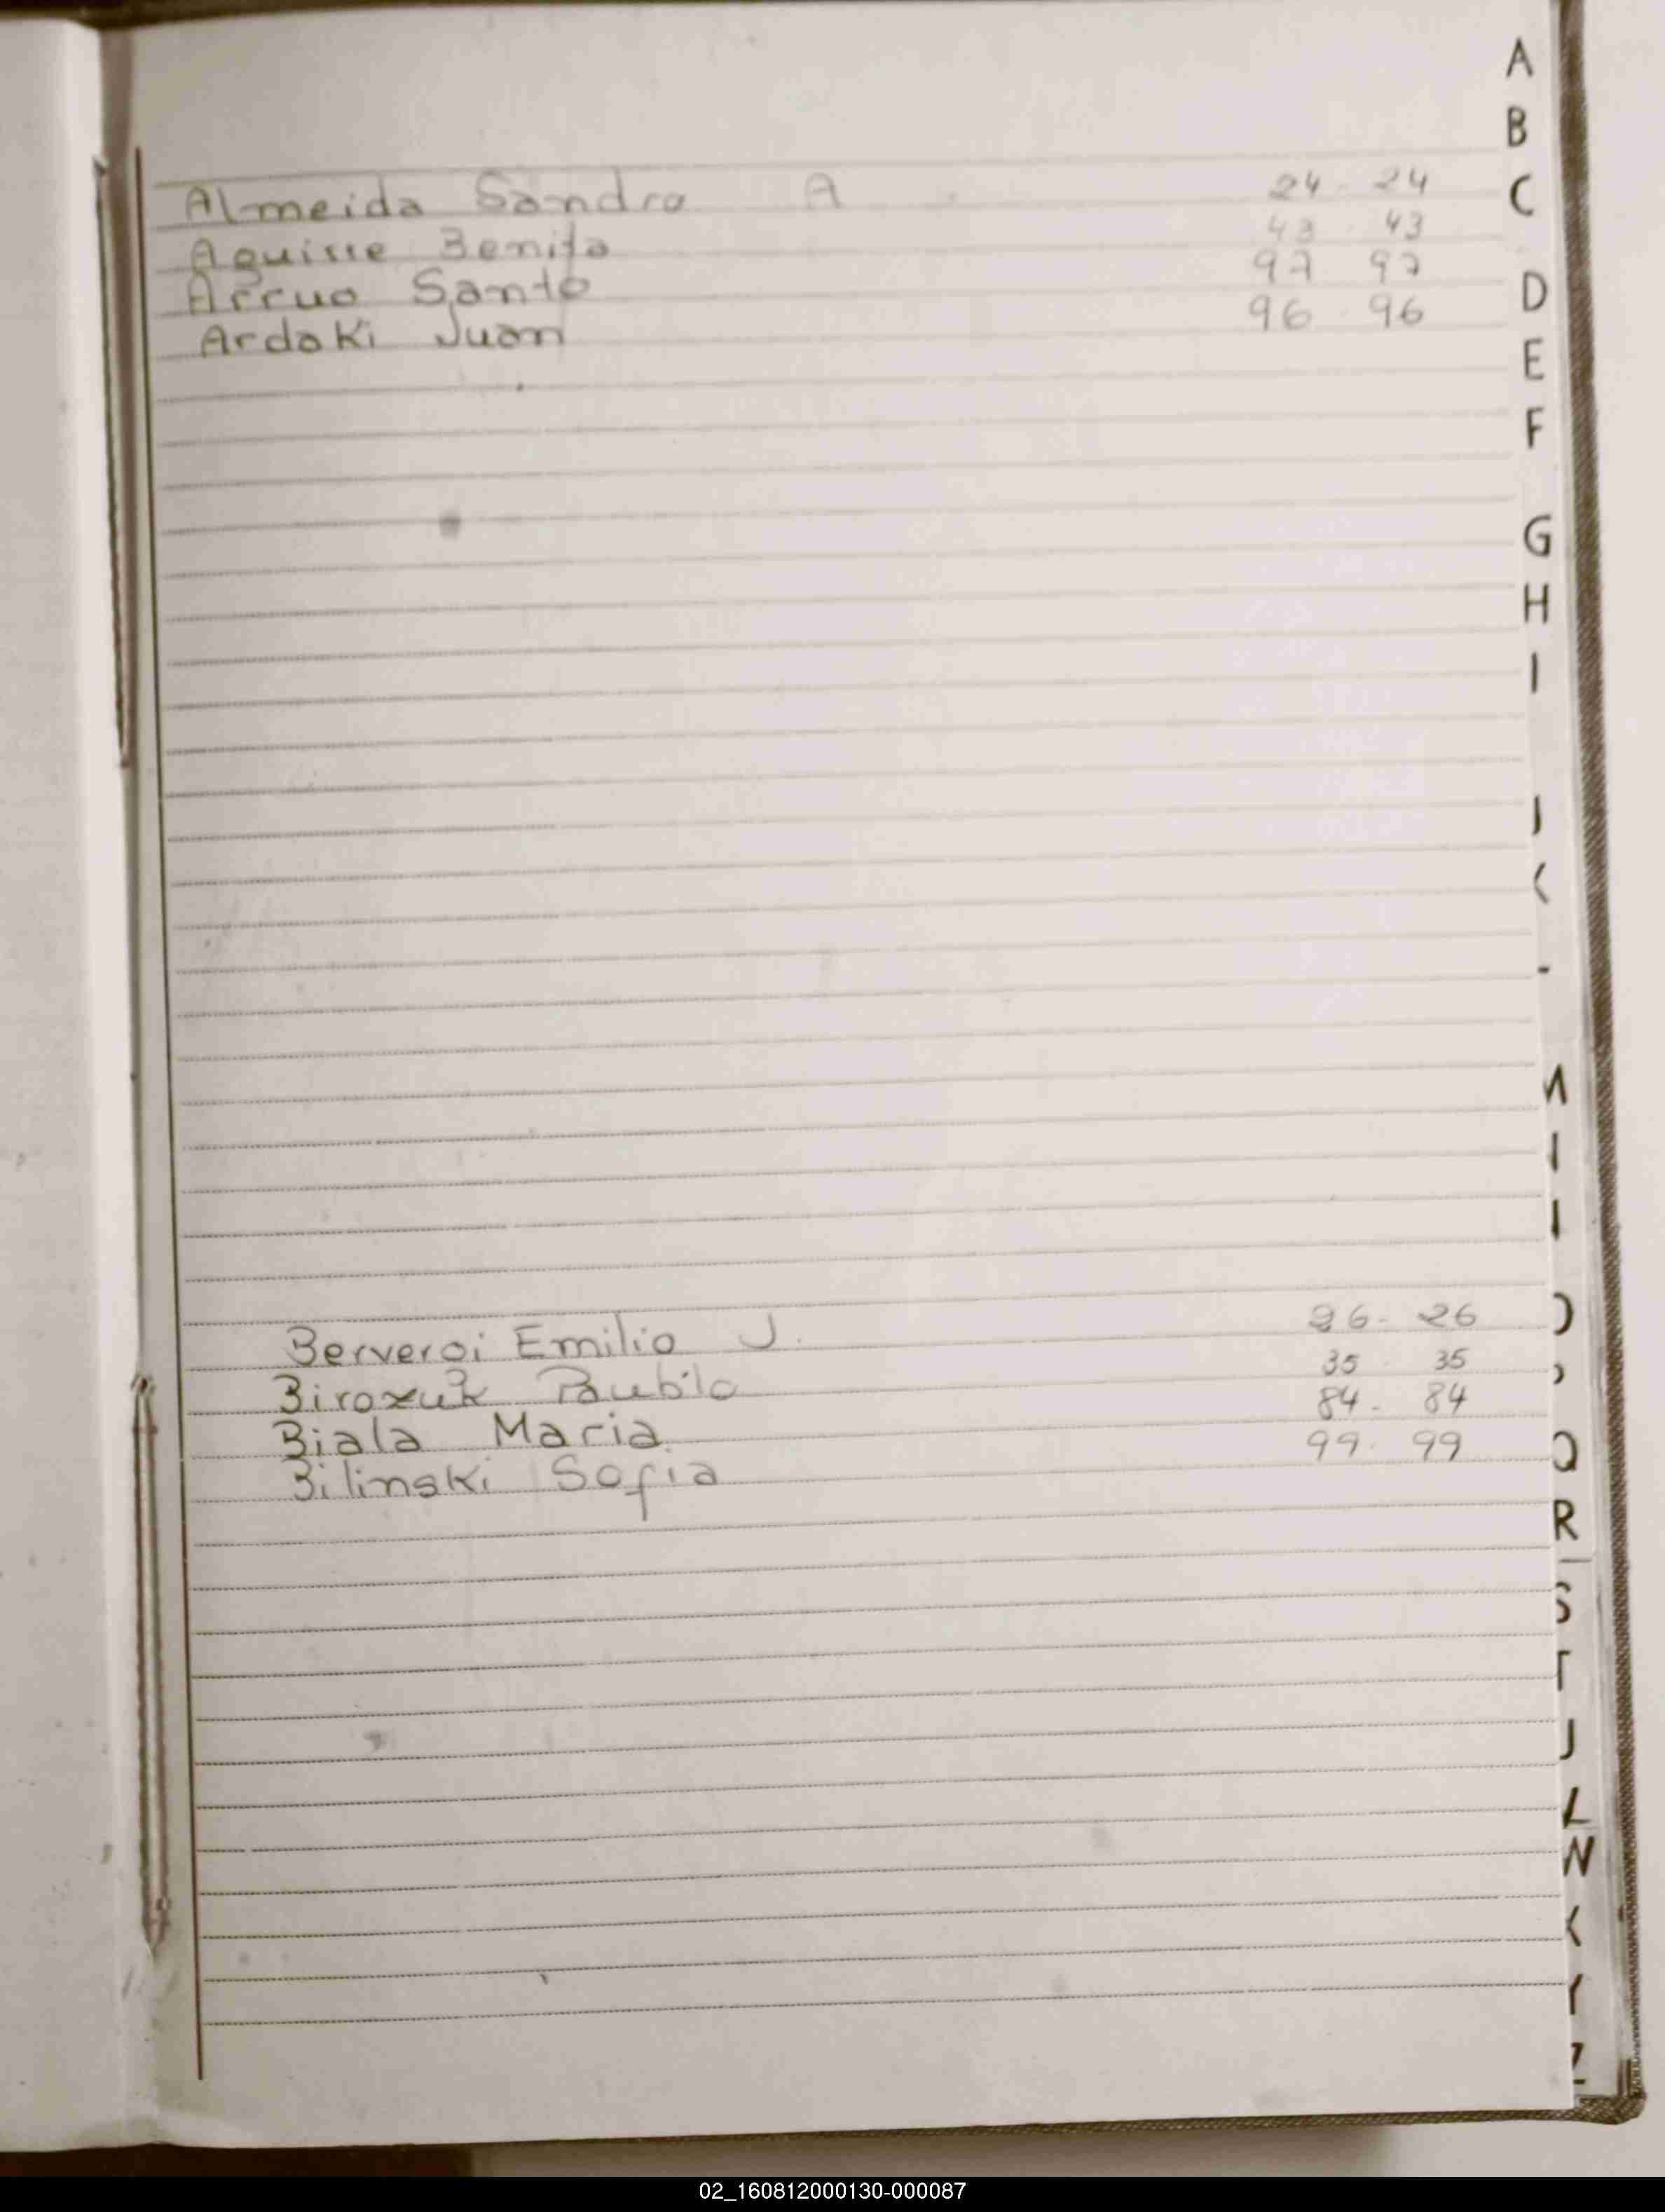 Almeida Sandra A 24 - 24
Aguirre Benita 43 - 43
Arruo Santo 97 97
Ardaki Juan 96 - 96
Berveroi Emilio J. 26 - 26
Biroxuk Paublo 35 - 35
Biala Maria 84 - 84
Bilinski Sofia 99 - 99
A
B
C
D
E
F
G
H
I
J
K
Q
R
S
T
J
L
W
Y
Z
02_160812000130-000087